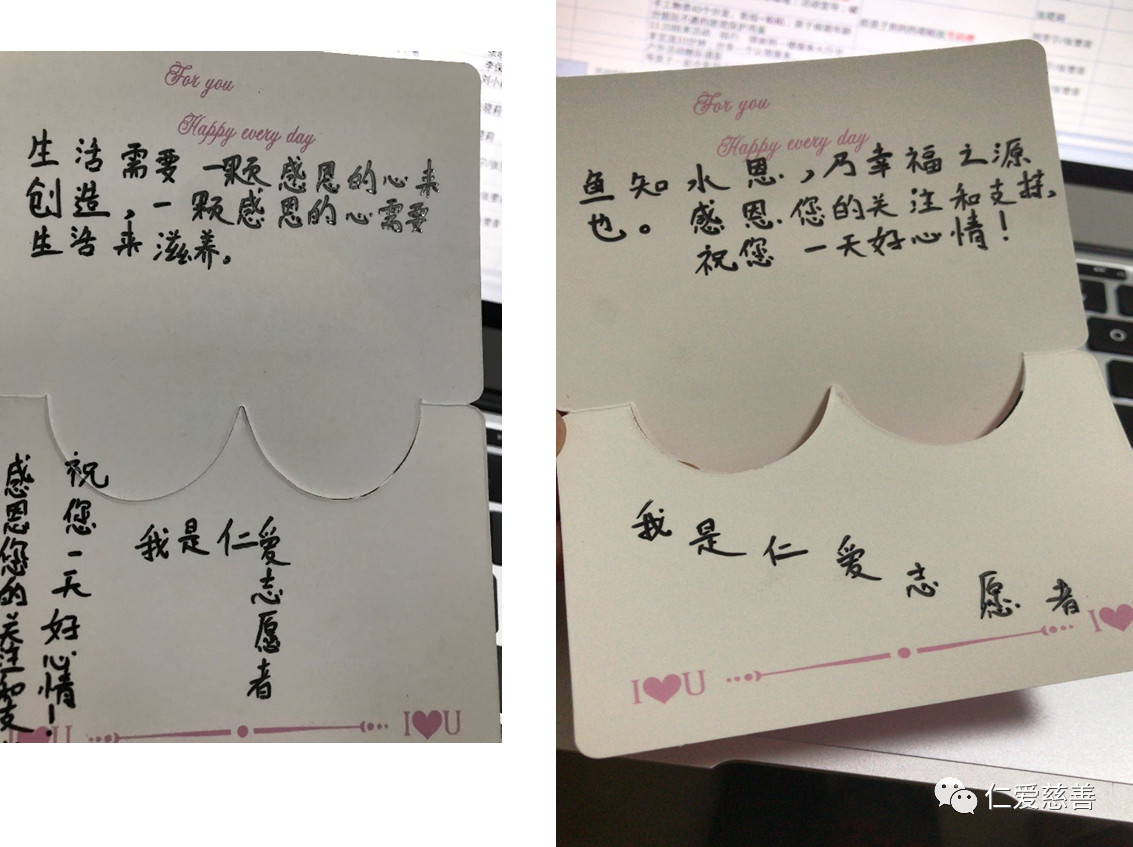 For you
Happy every day
生活需要一颗感恩的心来
创造，一颗感恩的心需要
生活来滋养。
祝您一天好心情！
感恩您的关注和支
我是仁爱志愿者
I❤U
I❤U
For you
Happy every day
鱼知水恩，乃幸福之源
也。感恩您的关注和支持，
祝您一天好心情！
我是仁爱志愿者
I❤U
I❤U
仁爱慈善